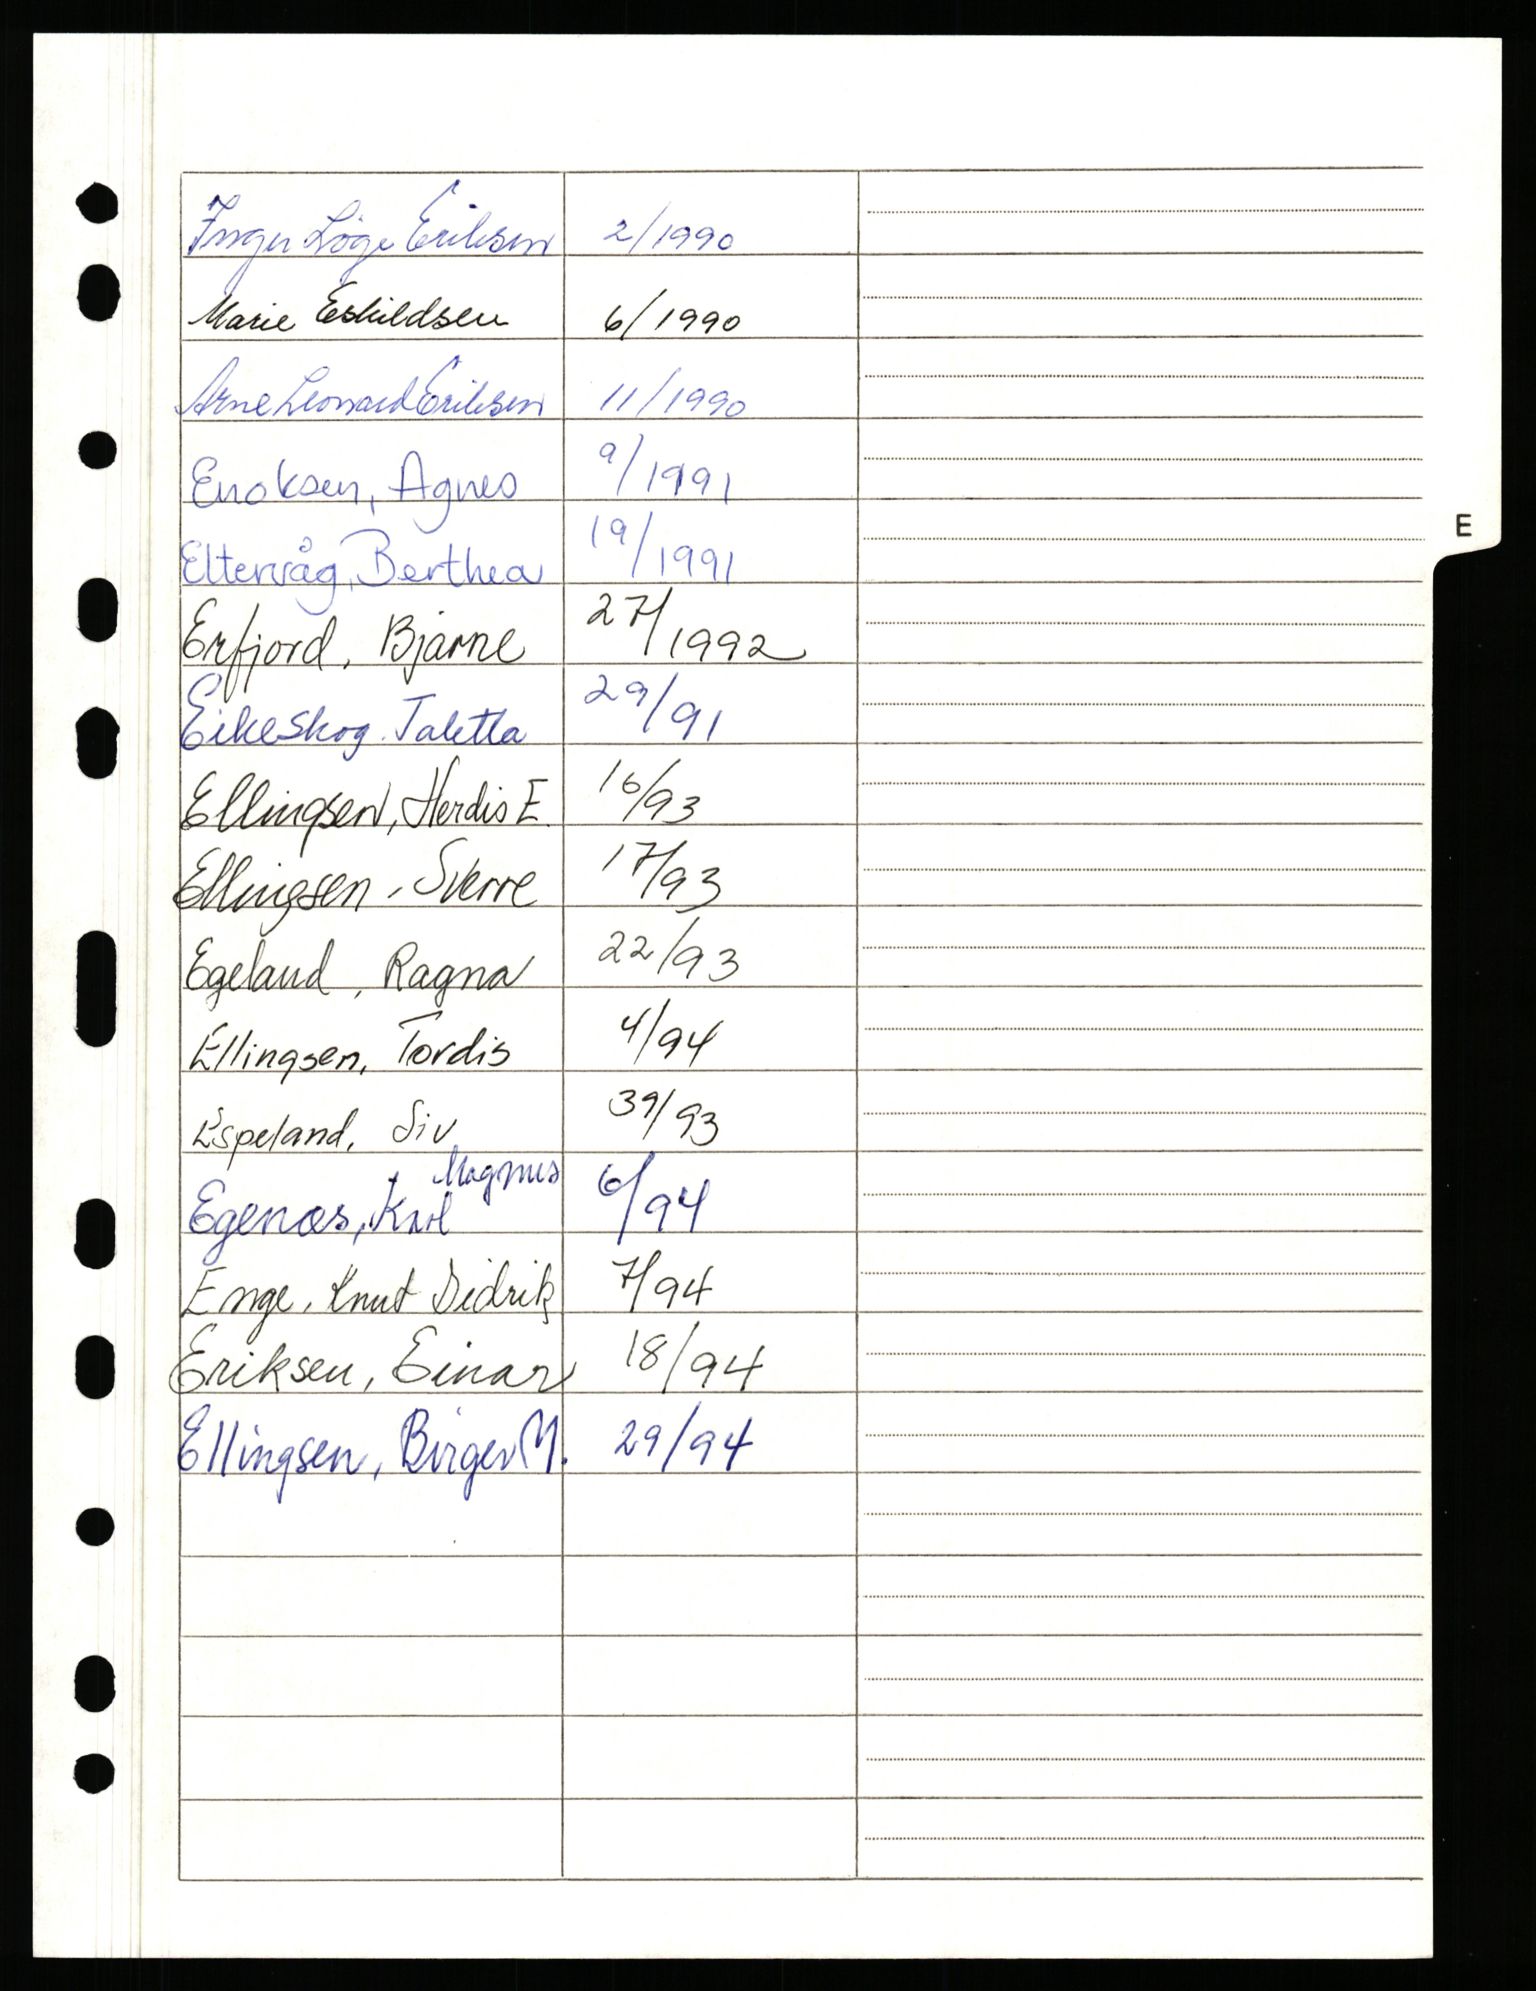 Inger Løge Eriksen 2/1990
Marie Eskildsen 6/1990
Arne Leonard Eriksen 11/1990
Enoksen, Agnes 9/1991
E
Eltervåg, Berthea 19/1991
Erfjord, Bjarne 27/1992
Eikeskog. Taletta 29/91
Ellingsen, Herdis E. 16/93
Ellingsen, Sverre 17/93
Egeland, Ragna 22/93
Ellingsen, Tordis 4/94
Espeland, Siv 39/93
Magnus
Egenæs, Karl 6/94
Enge, Knut Didrik 7/94
Eriksen, Einar 18/94
Ellingsen, Birger M. 29/94